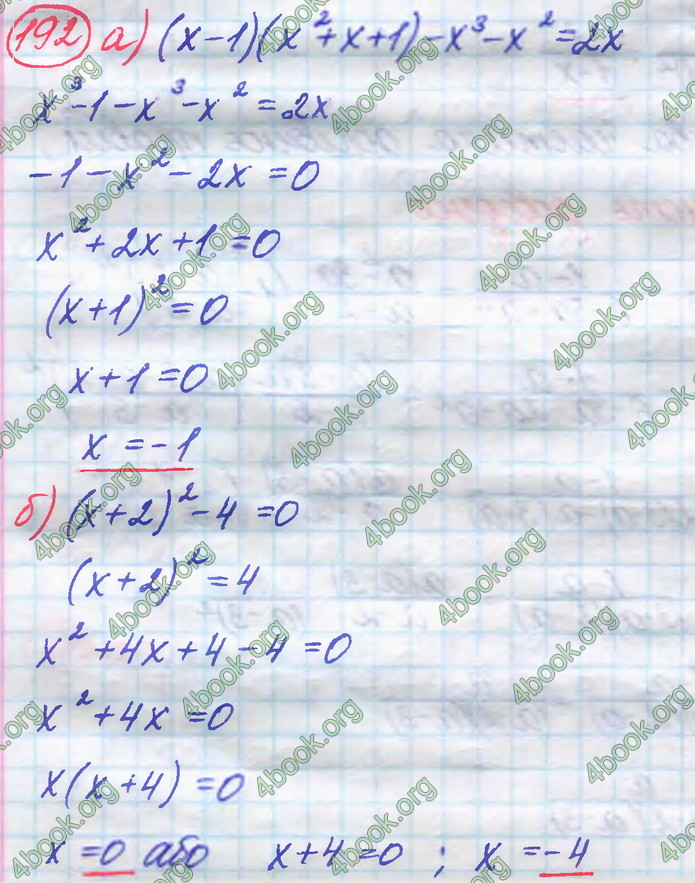 192 а) (x-1)(x²+x+1)-x³-x²=2x
x³-1-x³-x²=2x
-1-x²-2x=0
x²+2x+1=0
(x+1)²=0
x+1=0
x=-1
б) (x+2)²-4=0
(x+2)²=4
x²+4x+4-4=0
x²+4x=0
x(x+4)=0
x=0 або x+4=0; x=-4
4book.org